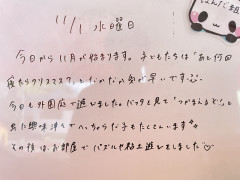 11/1 水曜日
今日から11月が始まります。子どもたちは「あと何回
寝たらクリスマス？」となかなか気が早いです
今日も外園庭で遊びました。バッタを見て「つかまえると」と
共に興味津々でへっちゃらな子もたくさんいます
その後は、お部屋でパズルや粘土遊びをしました
ぱんだ組